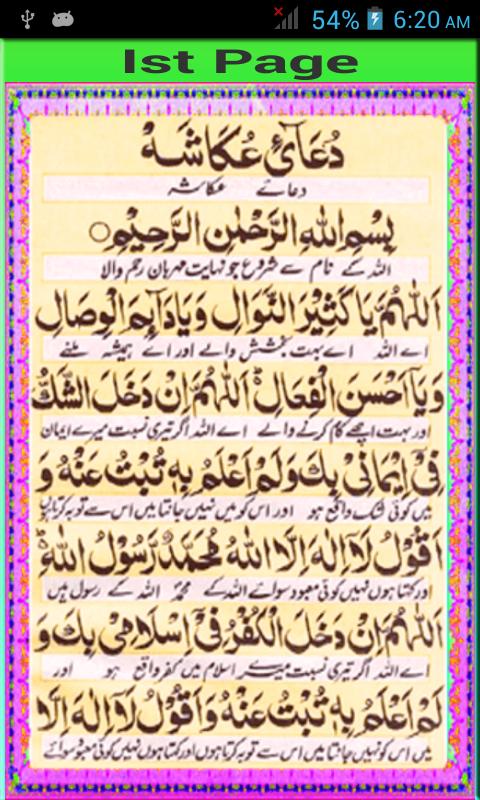 54% 6:20 AM
Ist Page
دُعَائِ عُكَاشَهْ
دعائے عکاشہ
بِسْمِ اللهِ الرَّحْمٰنِ الرَّحِيْمِ○
اللہ کے نام سے شروع جو نہایت مہربان رحم والا
اَللّٰهُمَّ يَا كَثِيْرَ النَّوَالِ وَيَا دَآئِمَ الْوِصَالِ
اے اللہ اے بہت بخشش والے اور اے ہمیشہ ملنے
وَيَا اَحْسَنَ الْفِعَالِ اَللّٰهُمَّ اِنْ دَخَلَ الشَّكُّ
اور بہت اچھے کام کرنے والے اے اللہ اگر تیری نسبت میرے ایمان
فِيْ اِيْمَانِيْ بِكَ وَلَمْ اَعْلَمْ بِهٖ تُبْتُ عَنْهُ وَ
میں کوئی شک واقع ہو اور اس کو میں نہیں جانتا میں اس سے توبہ کرتا ہوں
اَقُوْلُ لَآ اِلٰهَ اِلَّا اللهُ مُحَمَّدٌ رَّسُوْلُ اللهِ
اور کہتا ہوں نہیں کوئی معبود سوائے اللہ کے محمدؐ اللہ کے رسول ہیں
اَللّٰهُمَّ اِنْ دَخَلَ الْكُفْرُ فِيْٓ اِسْلَامِيْ بِكَ وَ
اے اللہ اگر تیری نسبت میرے اسلام میں کفر واقع ہو اور
لَمْ اَعْلَمْ بِهٖ تُبْتُ عَنْهُ وَ اَقُوْلُ لَآ اِلٰهَ اِلَّا
میں اس کو نہیں جانتا میں اس سے توبہ کرتا ہوں اور کہتا ہوں نہیں کوئی معبود سوائے